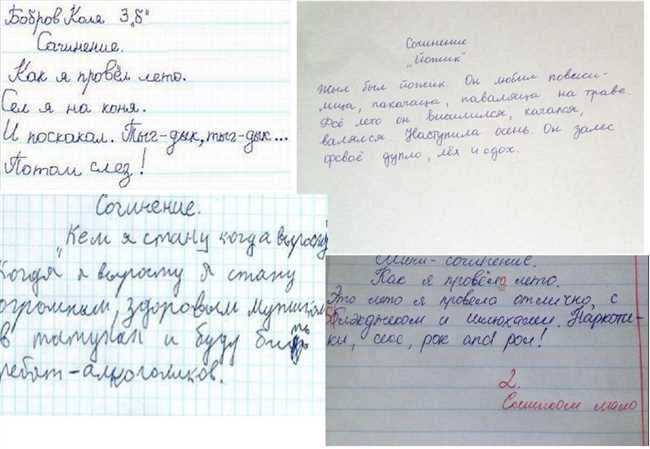 Бобров Коля 3 „б"
Сочинение.
Как я провёл лето.
Сел я на коня.
И поскакал. Тыг-дык, тыг-дык...
Потом слез!
Сочинение
„Йожик"
Жил был йожик. Он любил повиси-
лица, покачаца, паваляца на траве.
Фсё лето он висилился, качался,
валялся. Наступила осень. Он залес
фсваё дупло, лёх и сдох.
Сочинение.
„Кем я стану когда вырасту
Когда я вырасту я стану
огромным, здоровым мущиной
в татухах и буду бить
ребят-алкоголиков.
Мини-сочинение.
Как я провела лето.
Это лето я провела отлично, с
Блэкджеком и шлюхами. Наркоти-
ки, секс, рок and рол!
2.
Слишком мало